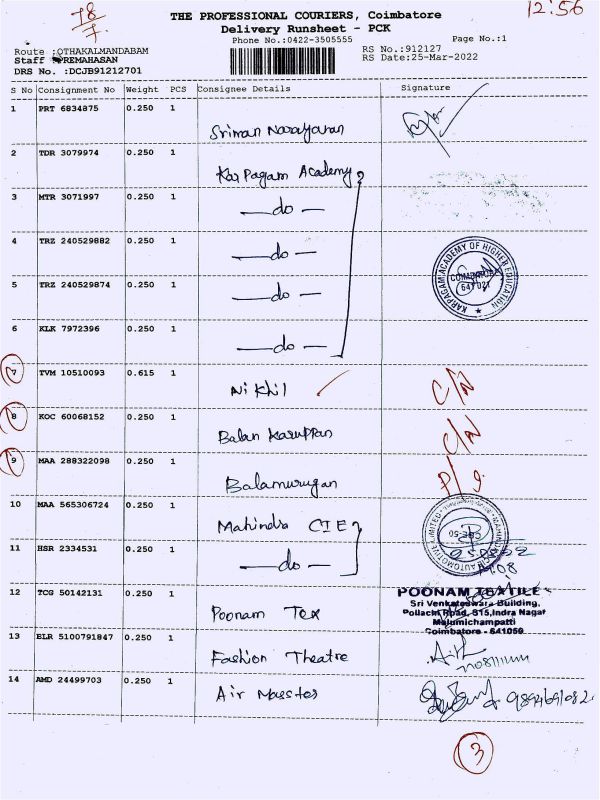 78
7.
12:56
THE PROFESSIONAL COURIERS, Coimbatore
Delivery Runsheet - PCK
Phone No.:0422-3505555 Page No.:1
Route :OTHAKALMANDABAM RS No.:912127
Staff :PREMAHASAN RS Date:25-Mar-2022
DRS No. :DCJB91212701
S No Consignment No Weight PCS Consignee Details Signature
1 PRT 6834875 0.250 1 Sriman Narayanan
2 TDR 3079974 0.250 1 Karpagam Academy
3 MTR 3071997 0.250 1 —do—
4 TRZ 240529882 0.250 1 —do—
KARPAGAM ACADEMY OF HIGHER EDUCATION
COIMBATORE
641 021
5 TRZ 240529874 0.250 1 —do—
6 KLK 7972396 0.250 1 —do—
7 TVM 10510093 0.615 1 Nikhil C/N
8 KOC 60068152 0.250 1 Balan Karuppan C/N
9 MAA 288322098 0.250 1 Balamurugan P/9.
10 MAA 565306724 0.250 1 Mahindra CIE
11 HSR 2334531 0.250 1 —do—
12 TCG 50142131 0.250 1 Poonam Tex
POONAM TEXTILE
Sri Venkateswara Building,
Pollachi Road, 815,Indra Nagar
Malumichampatti
Coimbatore - 641050
13 BLR 5100791847 0.250 1 Fashion Theatre
14 AMD 24499703 0.250 1 Air Masster 9894691082
3